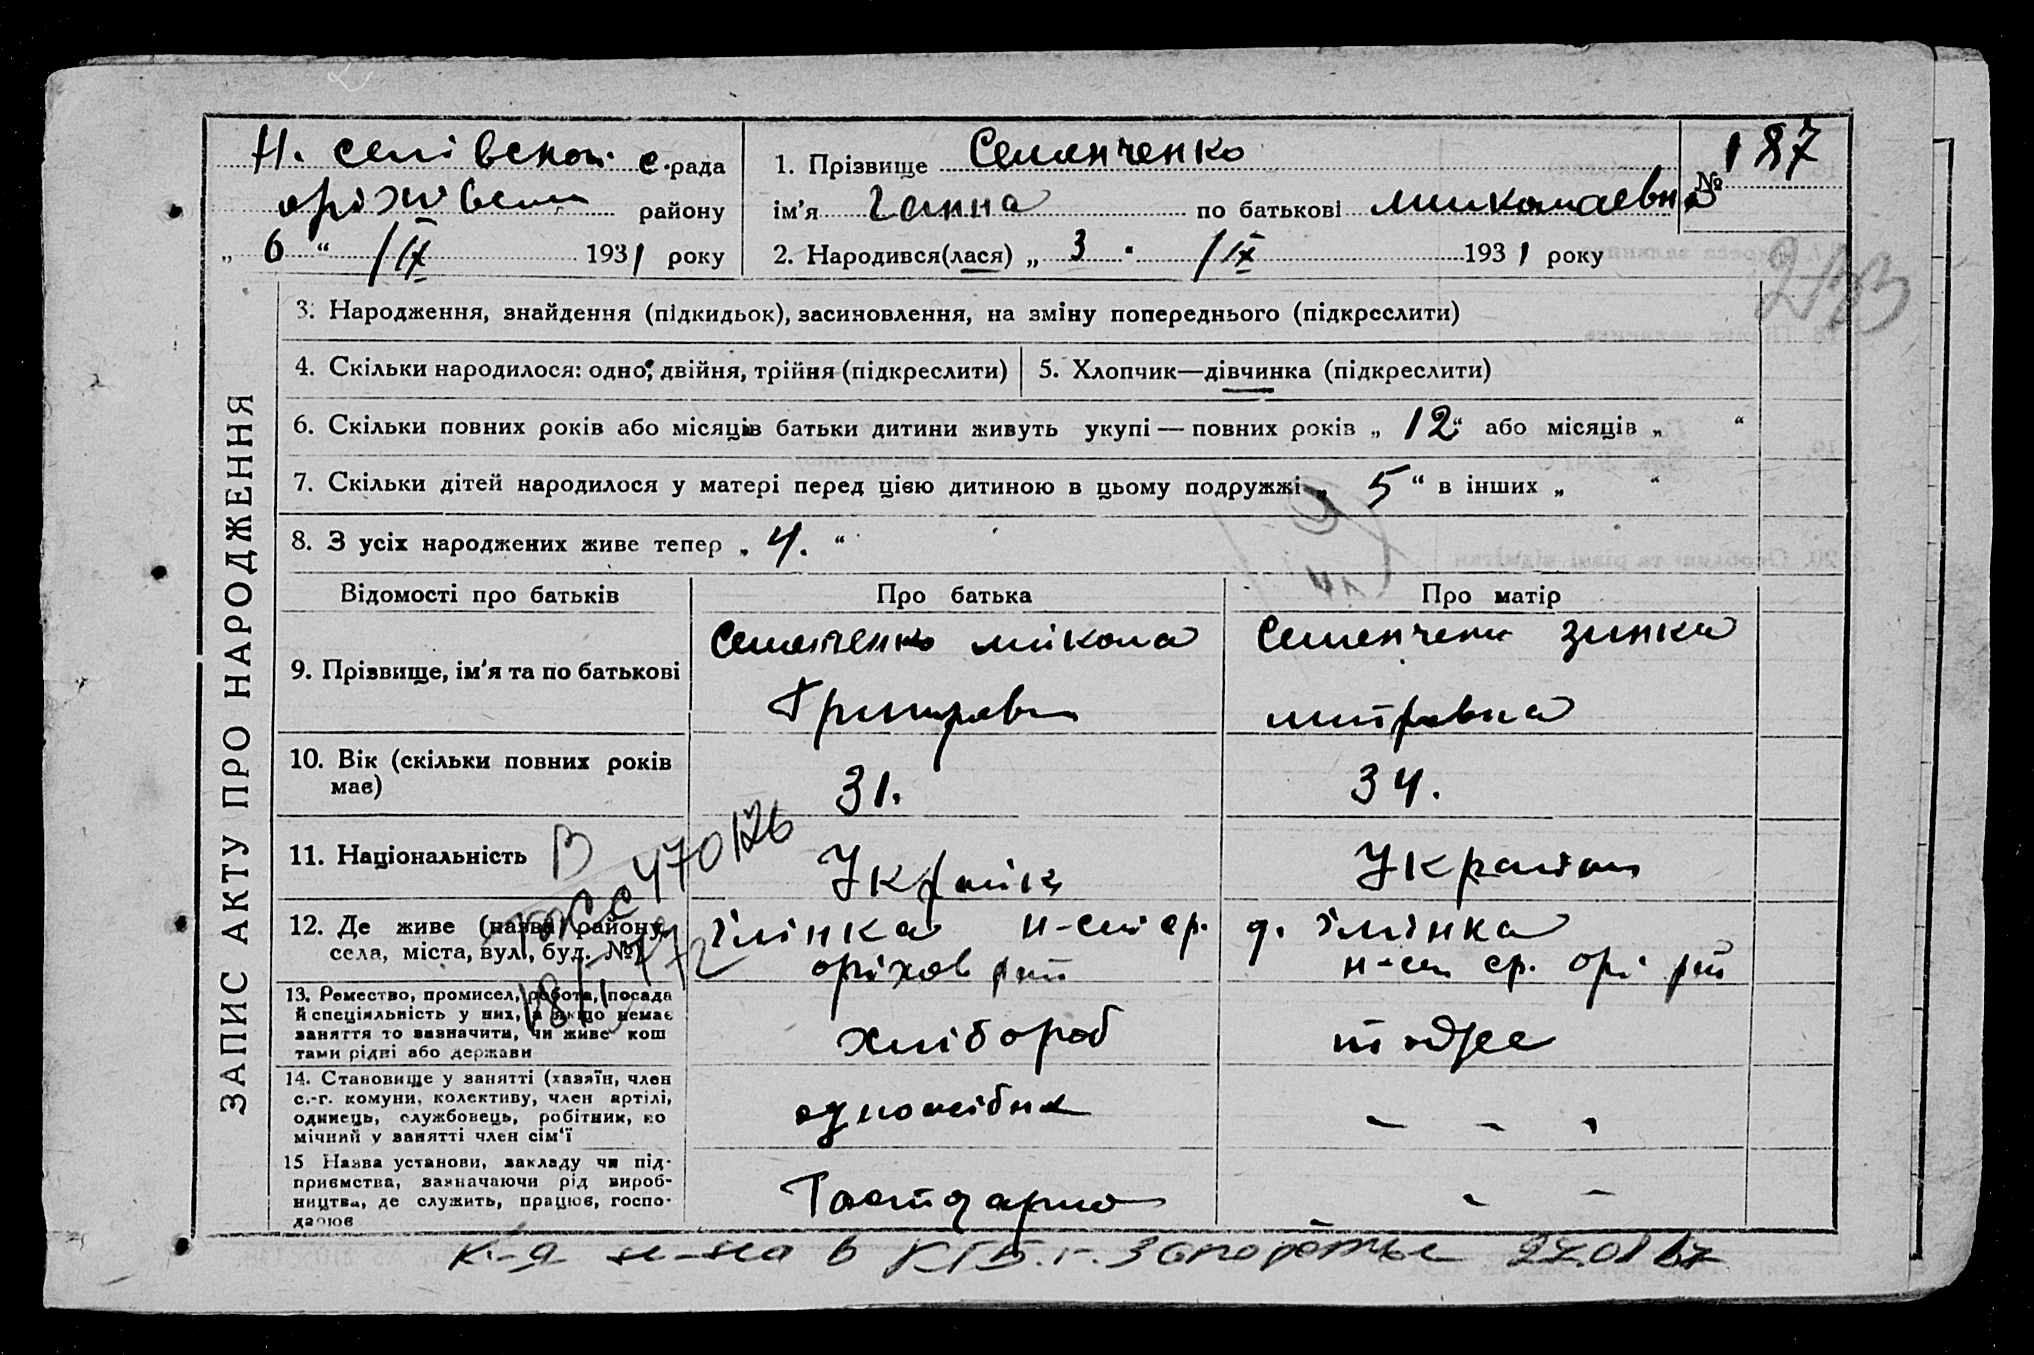 Н. селівської с.рада
оріхівськ району
„ 6 “ /IX 1931 року
1. Прізвище Семенченко
ім'я Ганна по батькові Миколаєвна
2. Народився(лася) „ 3 “ /IX 1931 року
№ 187
213
3. Народження, знайдення (підкидьок), засиновлення, на зміну попереднього (підкреслити)
4. Скільки народилося: одно, двійня, трійня (підкреслити)
5. Хлопчик—дівчинка (підкреслити)
6. Скільки повних років або місяців батьки дитини живуть укупі — повних років „ 12 “ або місяців „ “
7. Скільки дітей народилося у матері перед цією дитиною в цьому подружжі „ 5 “ в інших „ “
8. З усіх народжених живе тепер „ 4. “
ЗАПИС АКТУ ПРО НАРОДЖЕННЯ
Відомості про батьків
Про батька
Про матір
9. Прізвище, ім'я та по батькові
Семенченко микола
Григоров
Семенченк зинка
митровна
10. Вік (скільки повних років
має)
31.
34.
11. Національність
Україн
Україн
В
470126
12. Де живе (назва району,
села, міста, вул., буд. №)
ілінка н-сел ср.
оріхов рай
д. ілінка
н-сел ср. орі рай
13. Ремество, промисел, робота, посада
й спеціяльність у них, а якщо немає
заняття то зазначити, чи живе кош
тами рідні або держави
хлібороб
тодже
14. Становище у занятті (хазяїн, член
с.-г. комуни, колективу, член артілі,
одинець, службовець, робітник, ко
мічний у занятті член сім'ї
одноосібник
– – –
15 Назва установи, закладу чи під-
приємства, зазначаючи рід вироб-
ництва, де служить, працює, госпо-
дарює
Господарно
– –
к-я в КГБ г. Запорожье